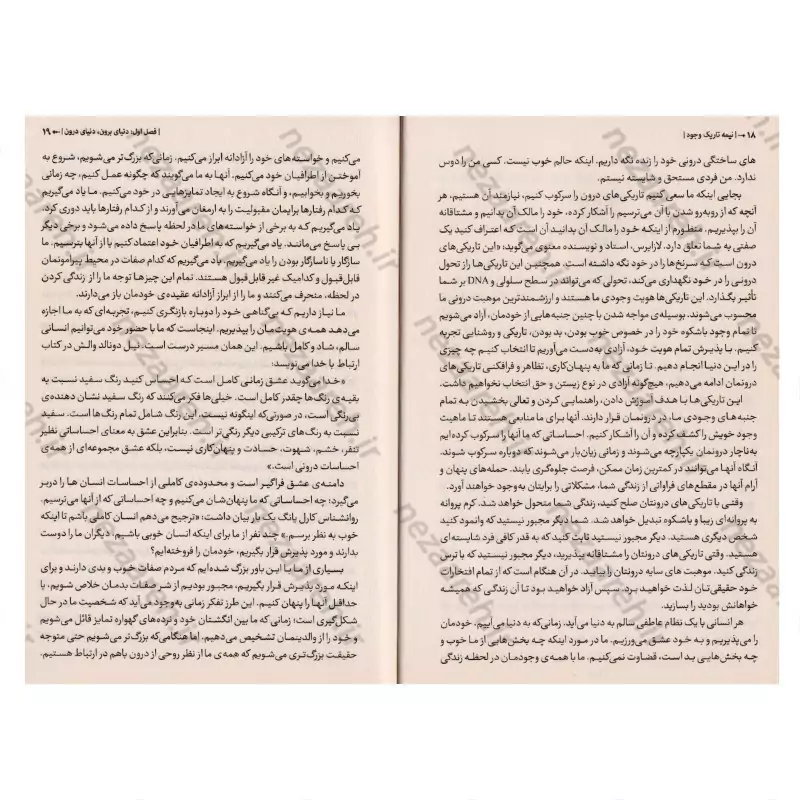 ۱۸ ← | نیمه تاریک وجود |
های ساختگی درونی خود را زنده نگه داریم. اینکه حالم خوب نیست. کسی من را دوس
ندارد. من فردی مستحق و شایسته نیستم.
بجایی اینکه ما سعی کنیم تاریکی‌های درون را سرکوب کنیم، نیازمند آن هستیم، هر
آنچه که از روبه‌رو شدن با آن می‌ترسیم را آشکار کرده، خود را مالک آن بدانیم و مشتاقانه
آن را بپذیریم. منظورم از اینکه خود را مالک آن بدانید آن است که اعتراف کنید یک
صفتی به شما تعلق دارد. لازابرس، استاد و نویسنده معنوی می‌گوید: «این تاریکی‌های
درون است که سرنخ‌ها را در خود نگه داشته است. همچنین این تاریکی‌ها راز تحول
درونی را در خود نگهداری می‌کند، تحولی که می‌تواند در سطح سلولی و DNA بر شما
تأثیر بگذارد. این تاریکی‌ها هویت وجودی ما هستند و ارزشمندترین موهبت درونی ما
محسوب می‌شوند. بوسیله‌ی مواجه شدن با چنین جنبه‌هایی از خودمان، آزاد می‌شویم
تا تمام وجود باشکوه خود را در خصوص خوب بودن، بد بودن، تاریکی و روشنایی تجربه
کنیم. با پذیرش تمام هویت خود، آزادی به‌دست می‌آوریم تا انتخاب کنیم چه چیزی
را در این دنیا انجام دهیم. تا زمانی که ما به پنهان‌کاری، تظاهر و فرافکنی تاریکی‌های
درونمان ادامه می‌دهیم، هیچ‌گونه آزادی در نوع زیستن و حق انتخاب نخواهیم داشت.
این تاریکی‌ها با هدف آموزش دادن، راهنمایی کردن و تعالی بخشیدن به تمام
جنبه‌های وجودی ما، در درونمان قرار دارند. آنها برای ما منابعی هستند تا ماهیت
وجود خویش را کشف کرده و آن را آشکار کنیم. احساساتی که ما آنها را سرکوب کرده‌ایم
به‌ناچار درونمان یکپارچه می‌شوند و زمانی زیان‌بار می‌شوند که دوباره سرکوب شوند.
آنگاه آنها می‌توانند در کمترین زمان ممکن، فرصت جلوه‌گری یابند. حمله‌های پنهان و
آرام آنها در مقطع‌های فراوانی از زندگی شما، مشکلاتی را برایتان به‌وجود خواهند آورد.
وقتی با تاریکی‌های درونتان صلح کنید، زندگی شما متحول خواهد شد. کرم پروانه
به پروانه‌ای زیبا و باشکوه تبدیل خواهد شد. شما دیگر مجبور نیستید که وانمود کنید
شخص دیگری هستید. دیگر مجبور نیستید ثابت کنید که به قدر کافی فرد شایسته‌ای
هستید. وقتی تاریکی‌های درونتان را مشتاقانه بپذیرید، دیگر مجبور نیستید که با ترس
زندگی کنید. موهبت های سایه درونتان را بیابید. در آن هنگام است که از تمام افتخارات
خود حقیقی‌تان لذت خواهید برد. سپس آزاد خواهید بود تا آن زندگی که همیشه
خواهانش بودید را بسازید.
هر انسانی با یک نظام عاطفی سالم به دنیا می آییم. زمانی‌که به دنیا می‌آییم، خودمان
را می‌پذیریم و به خود عشق می‌ورزیم. ما در مورد اینکه چه بخش‌هایی از ما خوب و
چه بخش‌هایی بد است، قضاوت نمی‌کنیم. ما با همه‌ی وجودمان در لحظه زندگی
| فصل اول: دنیای برون، دنیای درون | ← ۱۹
می‌کنیم و خواسته‌های خود را آزادانه ابراز می‌کنیم. زمانی‌که بزرگ‌تر می‌شویم، شروع به
آموختن از اطرافیان خود می‌کنیم. آنها به ما می‌گویند که چگونه عمل کنیم، چه زمانی
بخوریم و بخوابیم، و آنگاه شروع به ایجاد تمایزهایی در خود می‌کنیم. ما یاد می‌گیریم
که کدام رفتارها برایمان مقبولیت را به ارمغان می‌آورند و از کدام رفتارها باید دوری کرد.
یاد می‌گیریم که به برخی از خواسته‌های ما در لحظه پاسخ داده می‌شود و برخی دیگر
بی پاسخ می‌مانند. یاد می‌گیریم که به اطرافیان خود اعتماد کنیم یا از آنها بترسیم. ما
سازگار یا ناسازگار بودن را یاد می‌گیریم. یاد می‌گیریم که کدام صفات در محیط پیرامونمان
قابل‌قبول و کدامیک غیر قابل‌قبول هستند. تمام این چیزها توجه ما را از زندگی کردن
در لحظه، منحرف می‌کنند و ما را از ابراز آزادانه عقیده‌ی خودمان باز می‌دارند.
ما نیاز داریم که بی‌گناهی خود را دوباره بازنگری کنیم، تجربه‌ای که به ما اجازه
می‌دهد همه‌ی هویت‌مان را بپذیریم. اینجاست که ما با حضور خود می‌توانیم انسانی
سالم، شاد و کامل باشیم. این همان مسیر درست است. نیل دونالد والش در کتاب
ارتباط با خدا می‌نویسد:
«خدا می‌گوید عشق زمانی کامل است که احساس کنید رنگ سفید نسبت به
بقیه‌ی رنگ‌ها چقدر کامل است. خیلی‌ها فکر می‌کنند که رنگ سفید نشان دهنده‌ی
بی‌رنگی است، در صورتی‌که اینگونه نیست. این رنگ شامل تمام رنگ‌ها است. سفید
نسبت به رنگ‌های ترکیبی دیگر رنگی‌تر است. بنابراین عشق به معنای احساساتی نظیر
تنفر، خشم، شهوت، حسادت و پنهان‌کاری نیست، بلکه عشق مجموعه‌ای از همه‌ی
احساسات درونی است.»
دامنه‌ی عشق فراگیر است و محدوده‌ی کاملی از احساسات انسان ها را دربر
می‌گیرد؛ چه احساساتی که ما پنهان‌شان می‌کنیم و چه احساساتی که از آنها می‌ترسیم.
روانشناس کارل یانگ یک بار بیان داشت: «ترجیح می‌دهم انسان کاملی باشم تا اینکه
خوب به نظر برسم.» چند نفر از ما برای اینکه انسان خوبی باشیم. دیگران ما را دوست
بدارند و مورد پذیرش قرار بگیریم، خودمان را فروخته‌ایم؟
بسیاری از ما با این باور بزرگ شده‌ایم که مردم صفات خوب و بدی دارند و برای
اینکه مورد پذیرش قرار بگیریم، مجبور بودیم از شر صفات بدمان خلاص شویم، یا
حداقل آنها را پنهان کنیم. این طرز تفکر زمانی به‌وجود می‌آید که شخصیت ما در حال
شکل‌گیری است؛ زمانی که ما بین انگشتان خود و نرده‌های گهواره تمایز قائل می‌شویم
و خود را از والدینمان تشخیص می‌دهیم. اما هنگامی‌که بزرگ‌تر می‌شویم حتی متوجه
حقیقت بزرگ‌تری می‌شویم که همه‌ی ما از نظر روحی از درون باهم در ارتباط هستیم.